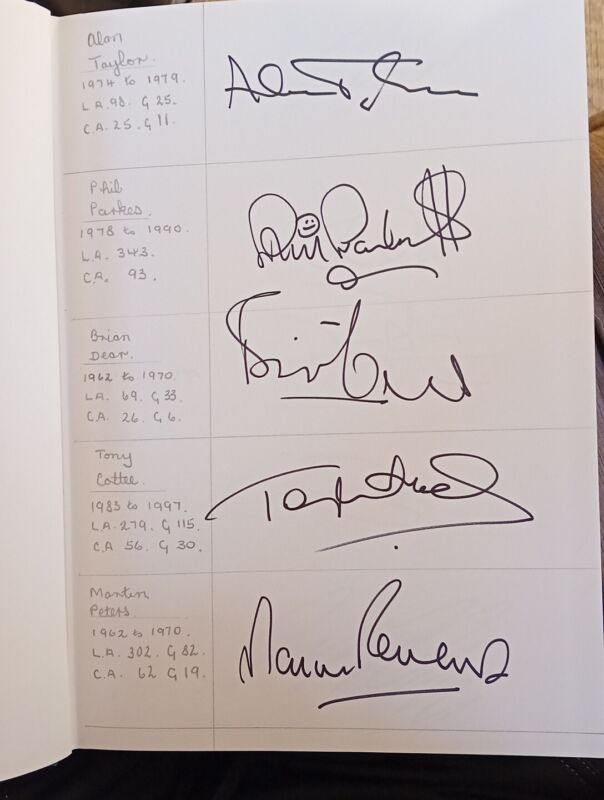 Alan
Taylor.
1974 to 1979.
L.A. 98. G 25.
C.A. 25. G 11.
Phil
Parkes.
1978 to 1990.
L.A. 343.
C.A. 93.
Brian
Dear.
1962 to 1970.
L.A. 69. G 33.
C.A. 26. G 6.
Tony
Cottee.
1983 to 1997.
L.A. 279. G 115.
C.A 56. G 30.
Martin
Peters
1962 to 1970.
L.A. 302. G 82.
C.A. 62 G 19.